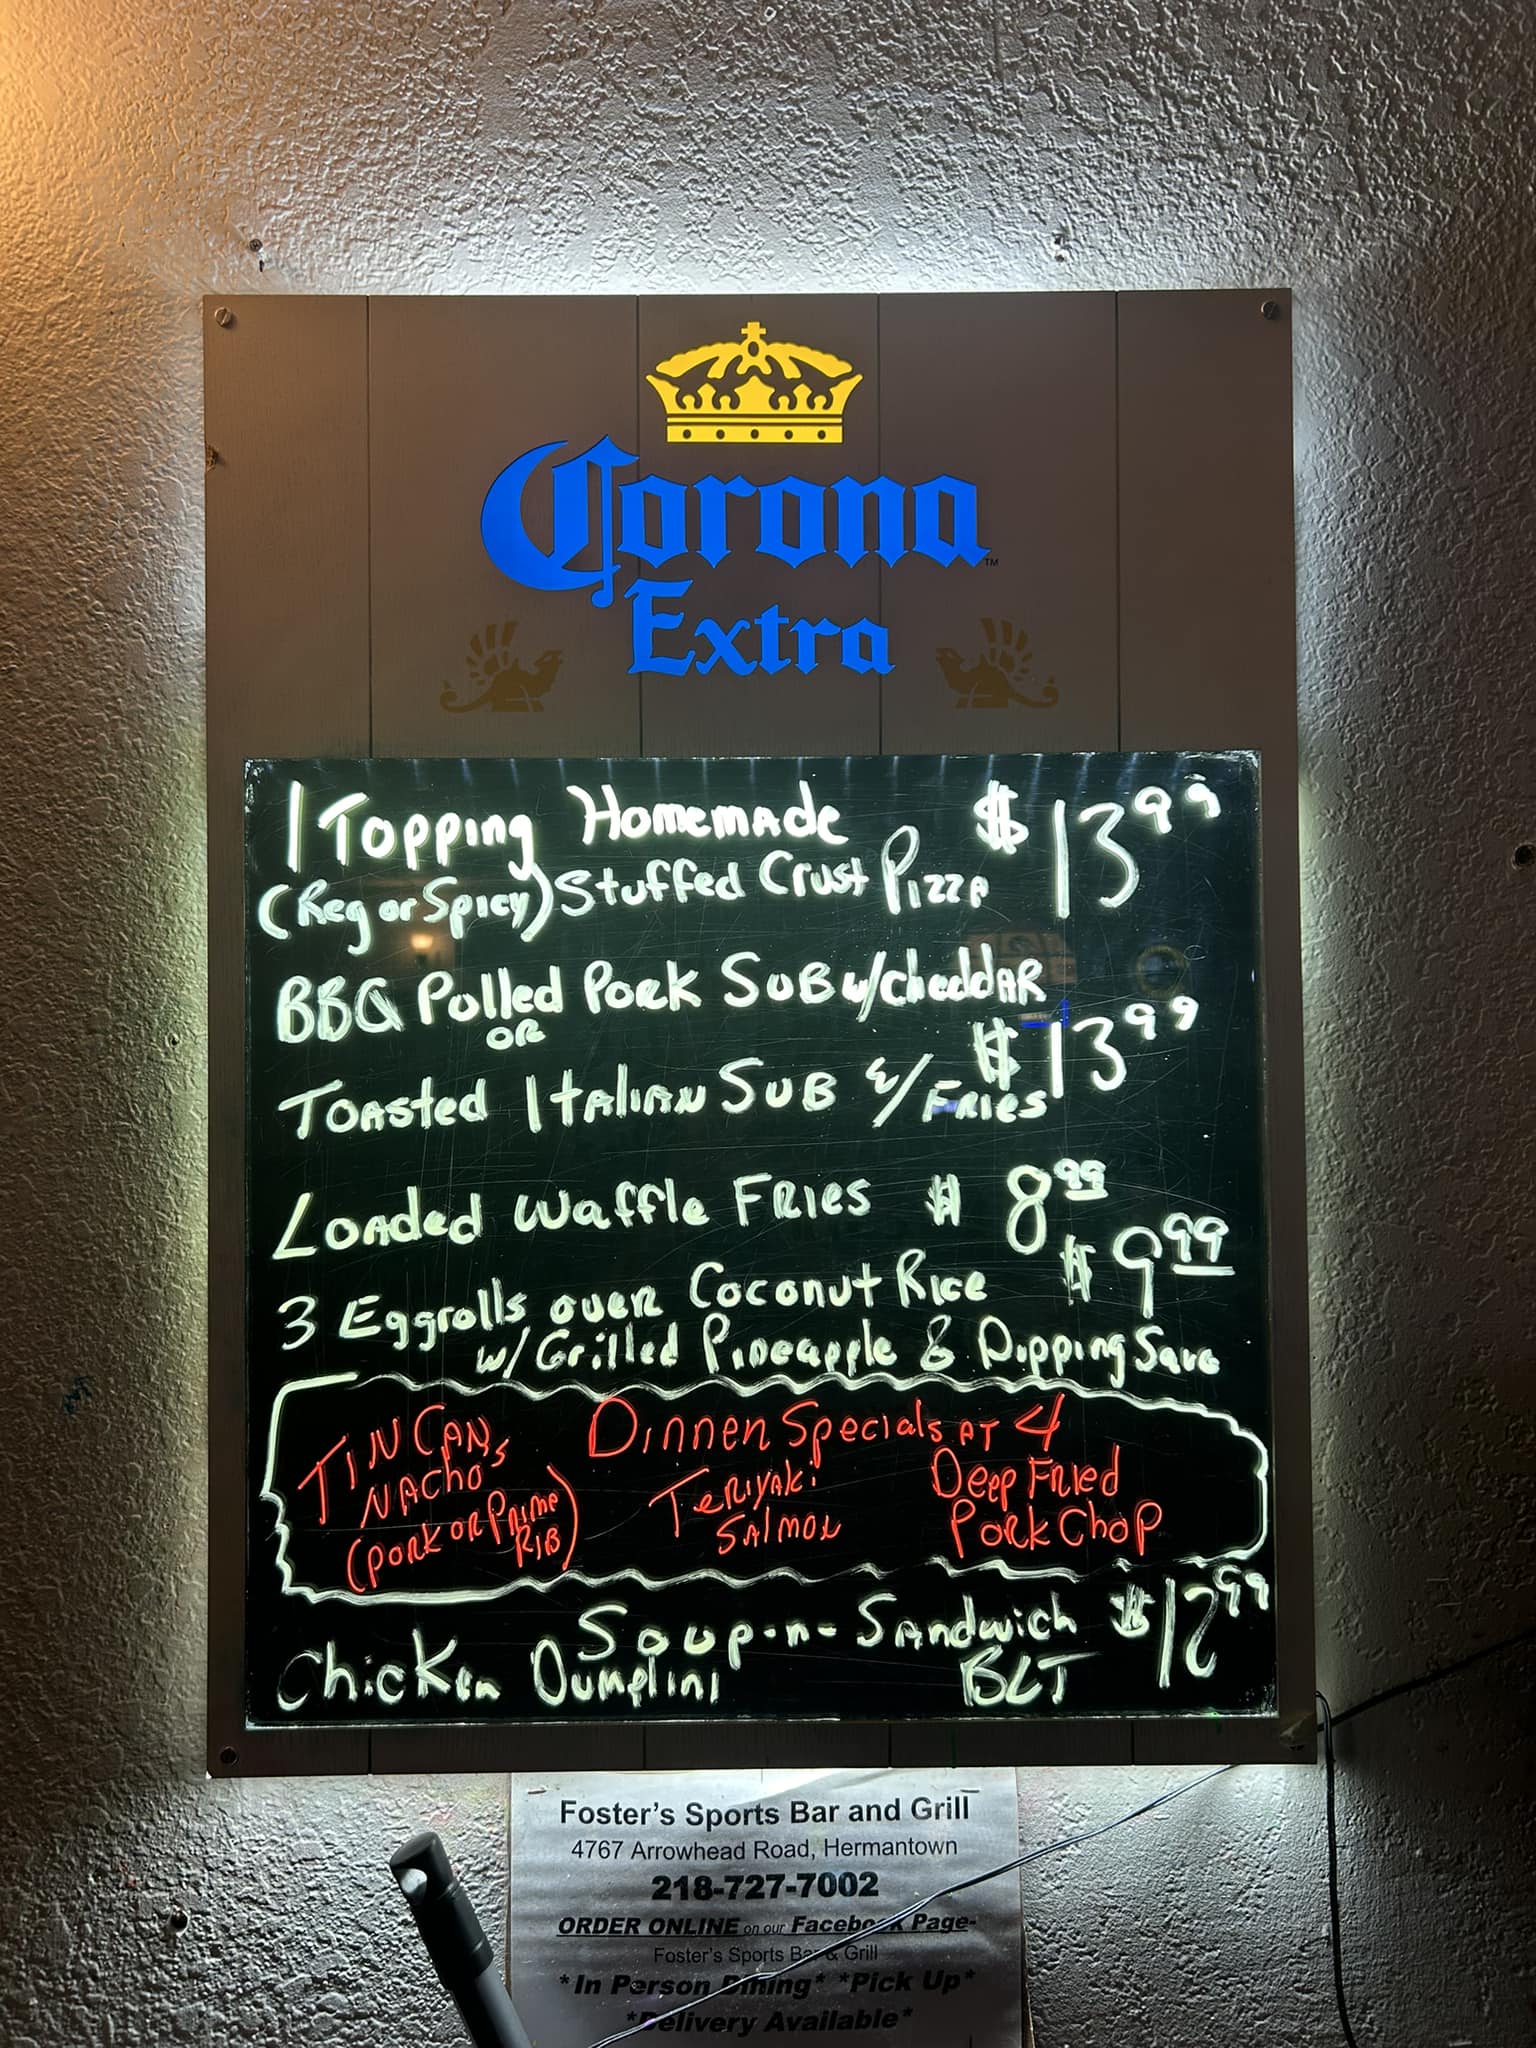 Corona
Extra
1 Topping Homemade $13.99
(Reg or Spicy) Stuffed Crust Pizza
BBQ Pulled Pork Sub w/Cheddar
OR
$13.99
Toasted Italian Sub w/Fries
Loaded Waffle Fries $8.99
3 Eggrolls over Coconut Rice $9.99
w/ Grilled Pineapple & Dipping Sauc
Dinner Specials at 4
Tin Can Nachos
(Pork or Prime Rib)
Teriyaki Salmon
Deep Fried Pork Chop
Soup-n-Sandwich $12.99
Chicken Dumplini BLT
Foster's Sports Bar and Grill
4767 Arrowhead Road, Hermantown
218-727-7002
ORDER ONLINE on our Facebook Page-
Foster's Sports Bar & Grill
*In Person Dining* *Pick Up*
*Delivery Available*